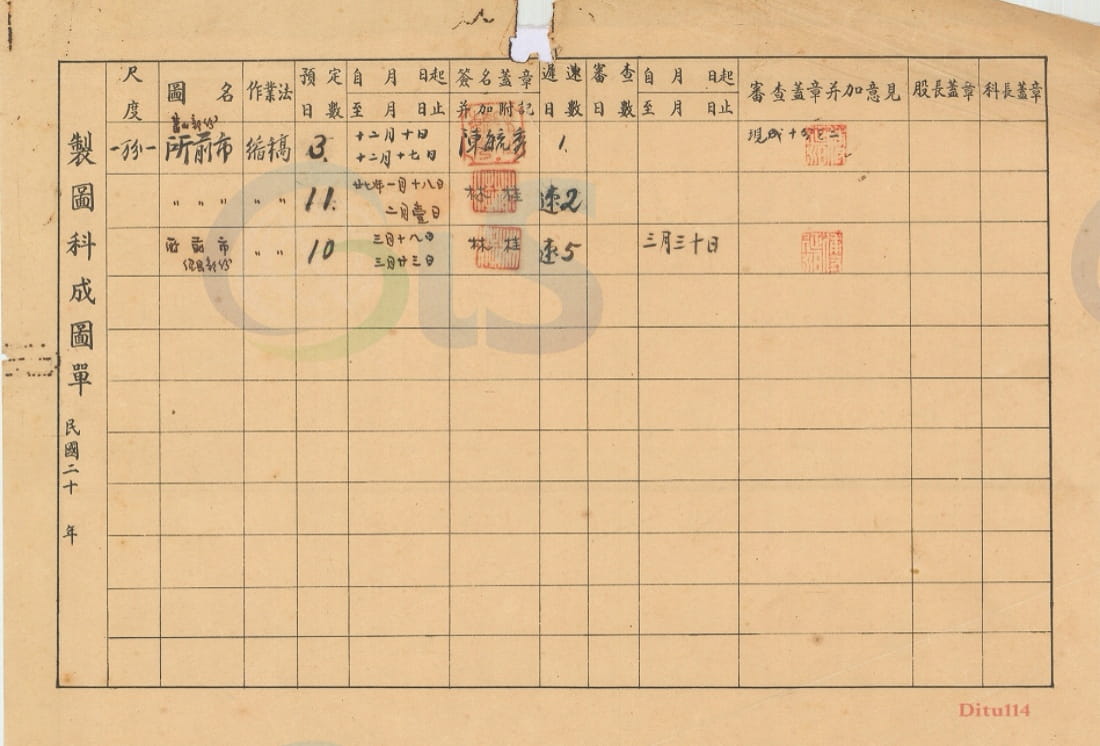 製圖科成圖單 民國二十 年
尺度 圖名 作業法 預定日數 自 月 日起 至 月 日止 簽名蓋章并加附記 遲速日數 審查日數 自 月 日起 至 月 日止 審查蓋章并加意見 股長蓋章 科長蓋章
蕭山新份
一份一 所前市 縮稿 3. 十二月十日 十二月十七日 陳毓秀 1. 現成十分之二
〃 〃 〃 〃 〃 〃 11. 廿七年一月十八日 二月壹日 林桂 速2
所前市 〃 〃 10 三月十八日 三月廿三日 林桂 速5 三月三十日
Ditu114